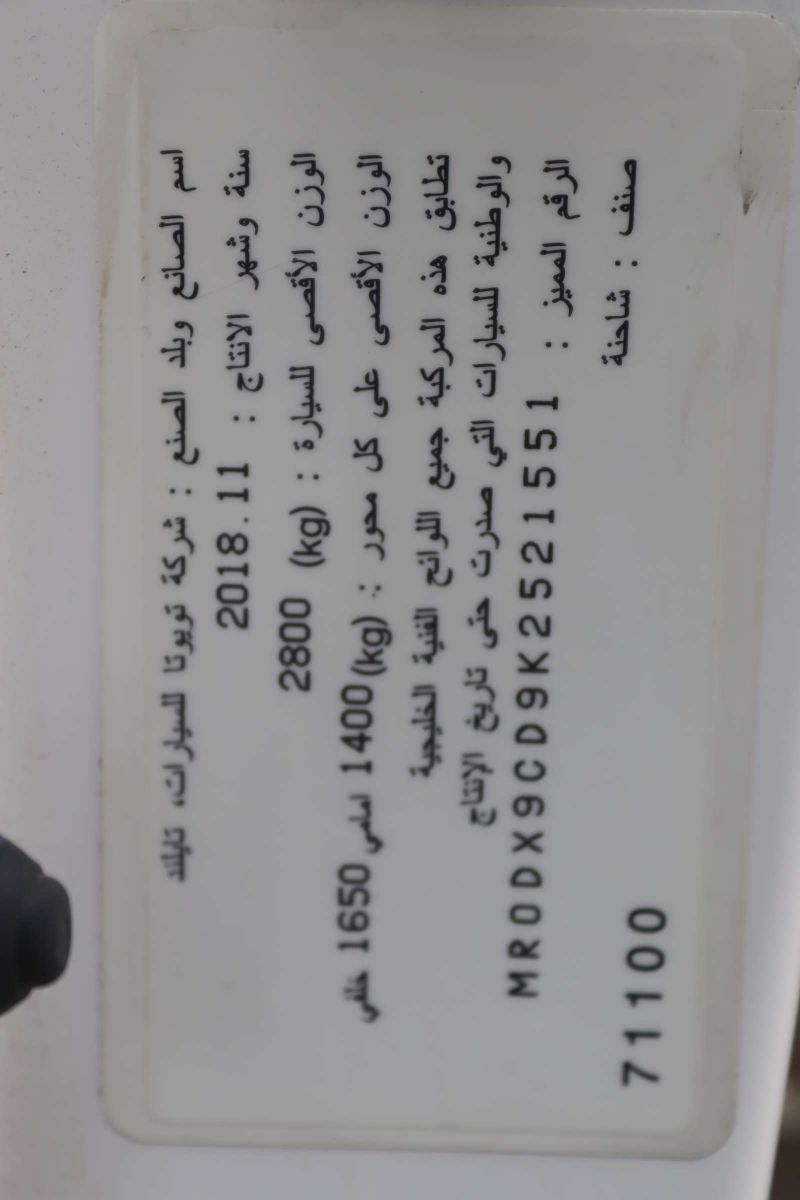 اسم الصانع وبلد الصنع : شركة تويوتا للسيارات، تايلاند
سنة وشهر الانتاج : 2018.11
الوزن الأقصى للسيارة : (kg) 2800
الوزن الأقصى على كل محور : (kg) 1400 امامي 1650 خلفي
تطابق هذه المركبة جميع اللوائح الفنية الخليجية
والوطنية للسيارات التي صدرت حتى تاريخ الإنتاج
الرقم المميز : MR0DX9CD9K2521551
صنف : شاحنة
71100